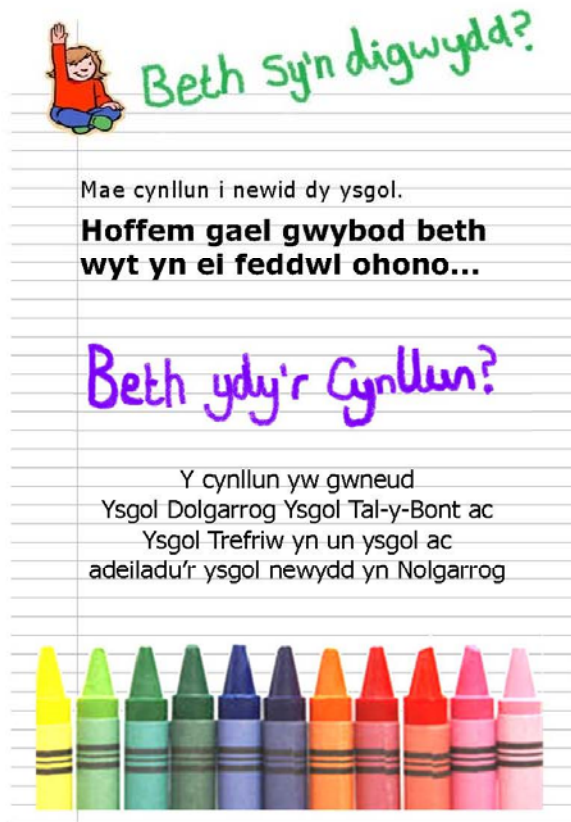 Beth sy'n digwydd?
Mae cynllun i newid dy ysgol.
Hoffem gael gwybod beth
wyt yn ei feddwl ohono...
Beth ydy'r Cynllun?
Y cynllun yw gwneud
Ysgol Dolgarrog Ysgol Tal-y-Bont ac
Ysgol Trefriw yn un ysgol ac
adeiladu'r ysgol newydd yn Nolgarrog